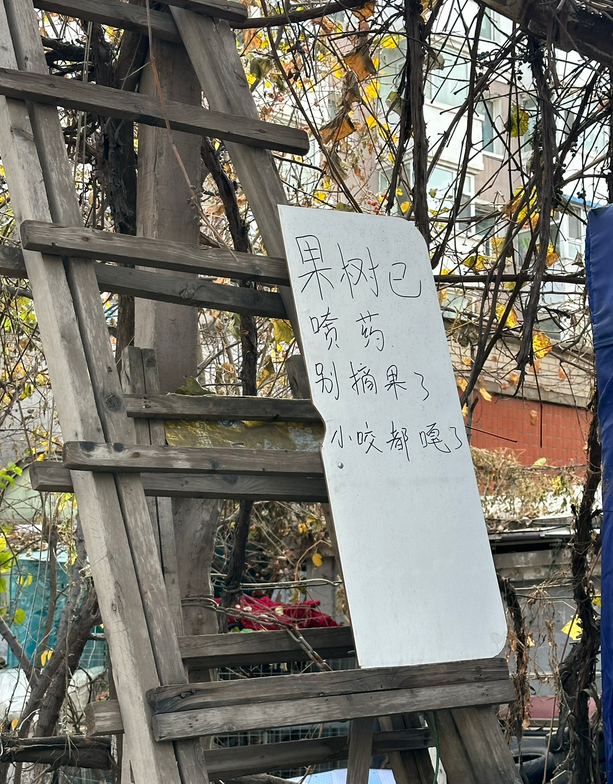 果树已
喷药.
别摘果了
小咬都嘎了